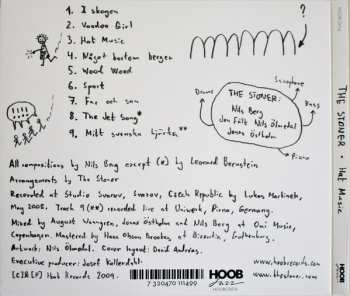 1. I skogen
2. Voodoo Girl
3. Hat Music
4. Något bortom bergen
5. Wood Wood
6. Sport
7. Far och son
8. The Jet Song*
9. Mitt svenska hjärta**
?
Saxophone
Drums
Bass
THE STONER:
Nils Berg
Jon Fält Nils Ölmedal
Jonas Östholm
Piano
All compositions by Nils Berg except (*) by Leonard Bernstein
Arrangements by The Stoner
Recorded at Studio Svarov, Svarov, Czech Republic by Lukas Martinek,
May 2008. Track 9(**) recorded live at Uniwerk, Pirna, Germany.
Mixed by August Wanngren, Jonas Östholm and Nils Berg at Omi Music,
Copenhagen. Mastered by Hans Olsson Brookes at Bizantin, Gothenburg.
Artwork: Nils Ölmedal. Cover layout: David Andréas.
Executive producer: Josef Kallerdahl.
[C][R][P] Hoob Records 2009.
7 320470 111499
HOOB
Jazz
www.hoobrecords.com
THE STONER • Hat Music